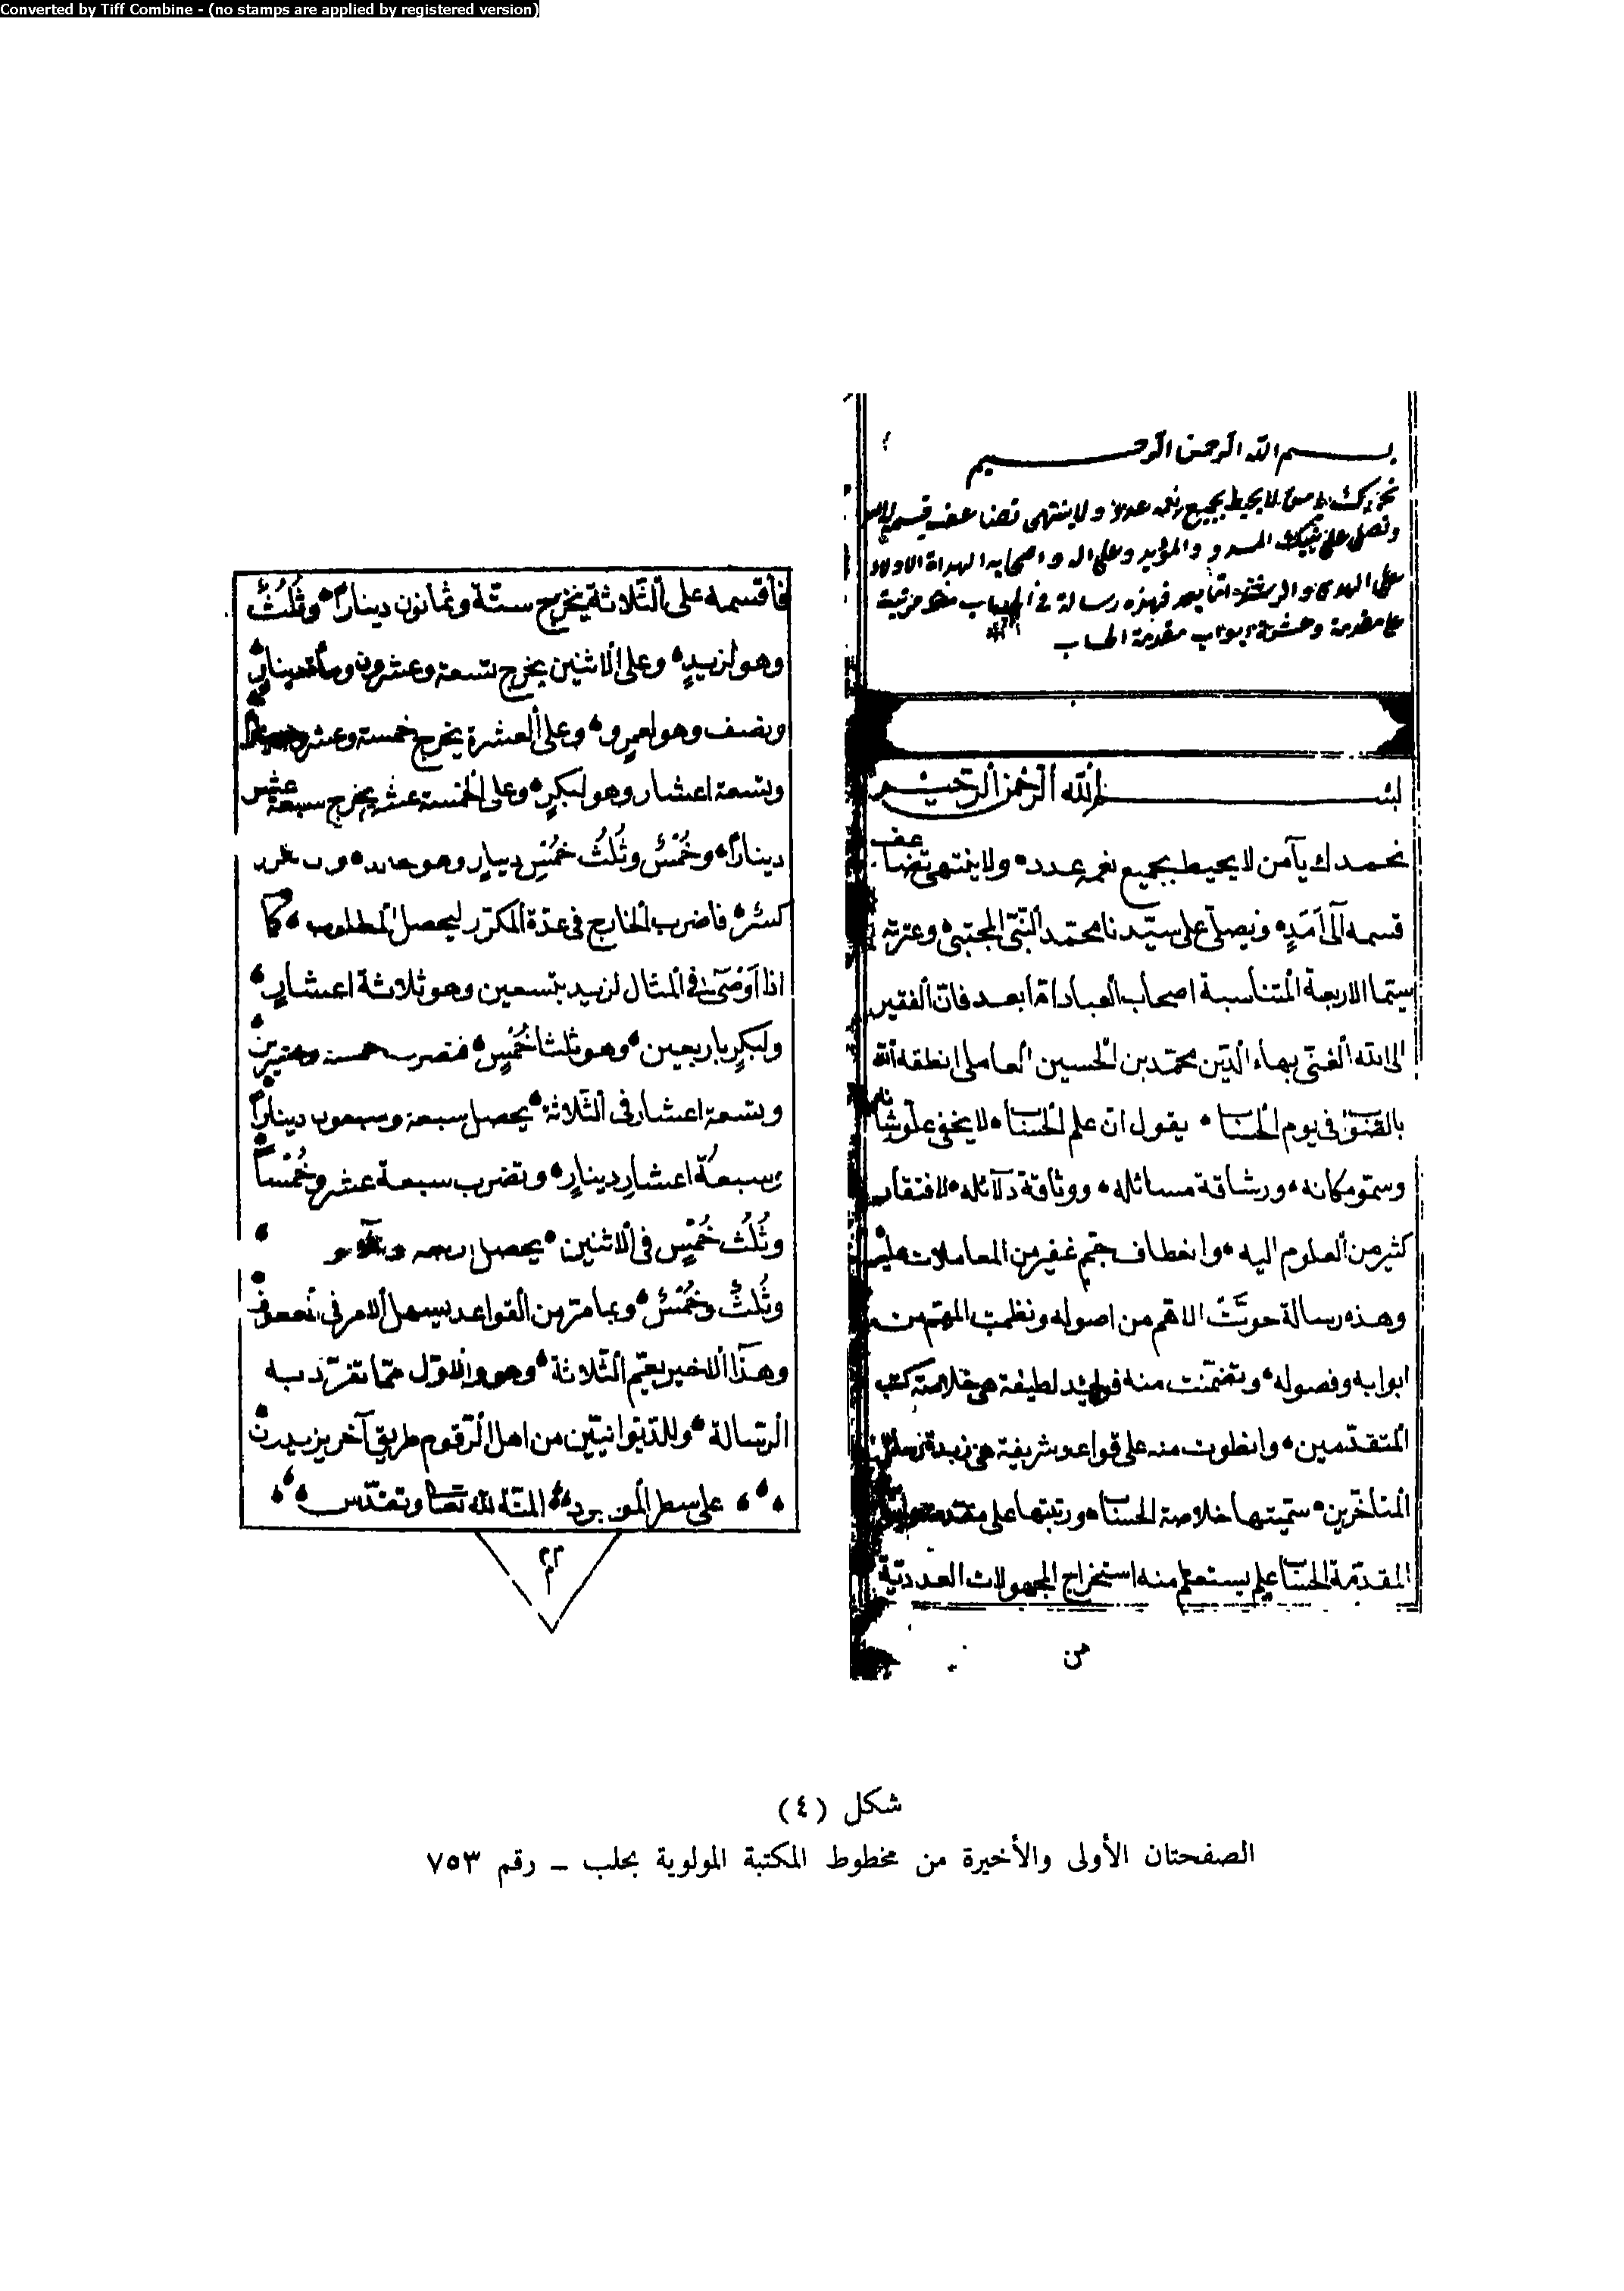 Converted by Tiff Combine - (no stamps are applied by registered version)
بسم الله الرحمن الرحيم
لا يحيط بجميع نعمه عدد ولا ينتهي تضاعف قسمه
ونصلي على نبيك والمؤيد وعلى اله واصحابه الهداة
على الهدى والرشد اما بعد فهذه رسالة في الحساب مرتبة
على مقدمة وعشرة ابواب مقدمة الحساب
بسم الله الرحمن الرحيم
نحمدك يا من لا يحيط بجميع نعمه عدد ولا ينتهي تضاعف
قسمه الى امد ونصلي على سيدنا محمد النبي المجتبى وعترته
سيما الاربعة المتناسبة اصحاب العبا اما بعد فان الفقير
الى الله الغني بهاء الدين محمد بن الحسين العاملي انطقه الله
بالصواب في يوم الحساب يقول ان علم الحساب لا يخفى علو شانه
وسمو مكانه ورشاقة مسائله ووثاقة دلائله لافتقار
كثير من العلوم اليه وانعطاف جم غفير من المعاملات عليه
وهذه رسالة حوت الاهم من اصوله ونظمت المهم من
ابوابه وفصوله وتضمنت منه فوائد لطيفة هي خلاصة كتب
المتقدمين وانطوت منه على قواعد شريفة هي زبدة رسائل
المتاخرين سميتها خلاصة الحساب ورتبتها على مقدمة
المقدمة الحساب علم يستعلم منه استخراج المجهولات العددية
من
فاقسمه على الثلاثة يخرج ستة وثمانون ديناراً وثُلُثٌ
وهو لزيدٍ وعلى الاثنين يخرج تسعة وعشرون ومأة دينار
ونصف وهو لعمرو وعلى العشرة يخرج خمسة وعشرون
وتسعة اعشار وهو لبكرٍ وعلى الخمسة عشر يخرج سبعة عشر
ديناراً وخُمْسٌ وثُلُثُ خُمْسِ دينارٍ وهو لخالد
كسر فاضرب الخارج في عدة المكرر ليحصل المطلوب كما
اذا اوصى في المثال لزيد بتسعين وهو ثلاثة اعشارٍ
ولبكرٍ باربعين وهو ثلثا خُمْسٍ فتضرب خمسة وعشرين
وتسعة اعشار في الثلاثة يحصل سبعة وسبعون ديناراً
وسبعة اعشار دينارٍ وتضرب سبعة عشر وخُمْساً
وثُلُث خُمْسٍ في الاثنين يحصل اربعة وثلاثون
وثُلُثٌ وخُمْسٌ وبما مر من القواعد يسهل الامر في
وهذا الاخير يعم الثلاثة وهو والاول مما تفرد به
الرسالة وللديوانيين من اهل الرقوم طريق آخر يزيدون
على سطر المنة لله تعالى وتقدس
شكل (٤)
الصفحتان الأولى والأخيرة من مخطوط المكتبة المولوية بحلب - رقم ٧٥٣